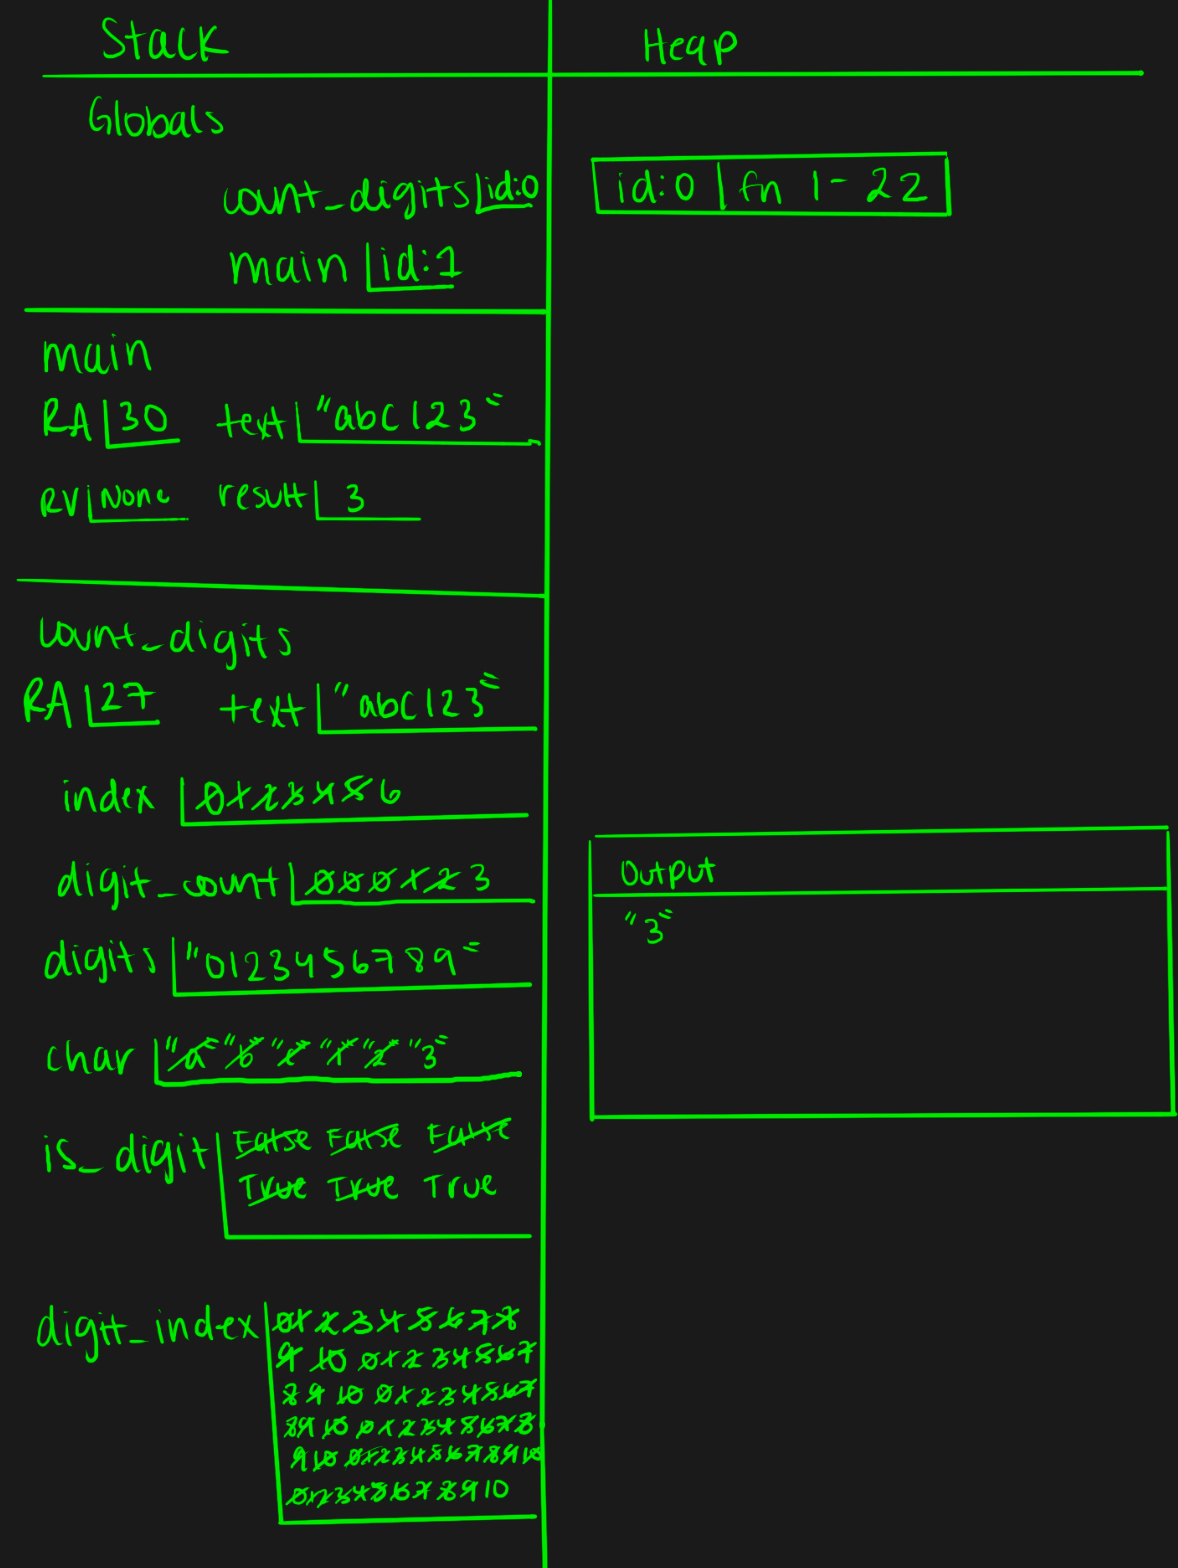 Stack
Heap
Globals
count_digits id:0
id:0 fn 1-22
main id:1
main
RA 30 text "abc123"
RV None result 3
count_digits
RA 27 text "abc123"
index 0 1 2 3 4 5 6
digit_count 0 0 0 1 2 3
digits "0123456789"
char "a" "b" "c" "1" "2" "3"
is_digit False False False
True True True
digit_index 0 1 2 3 4 5 6 7 8
9 10 0 1 2 3 4 5 6 7
8 9 10 0 1 2 3 4 5 6 7
8 9 10 0 1 2 3 4 5 6 7 8
9 10 0 1 2 3 4 5 6 7 8 9 10
0 1 2 3 4 5 6 7 8 9 10
Output
"3"